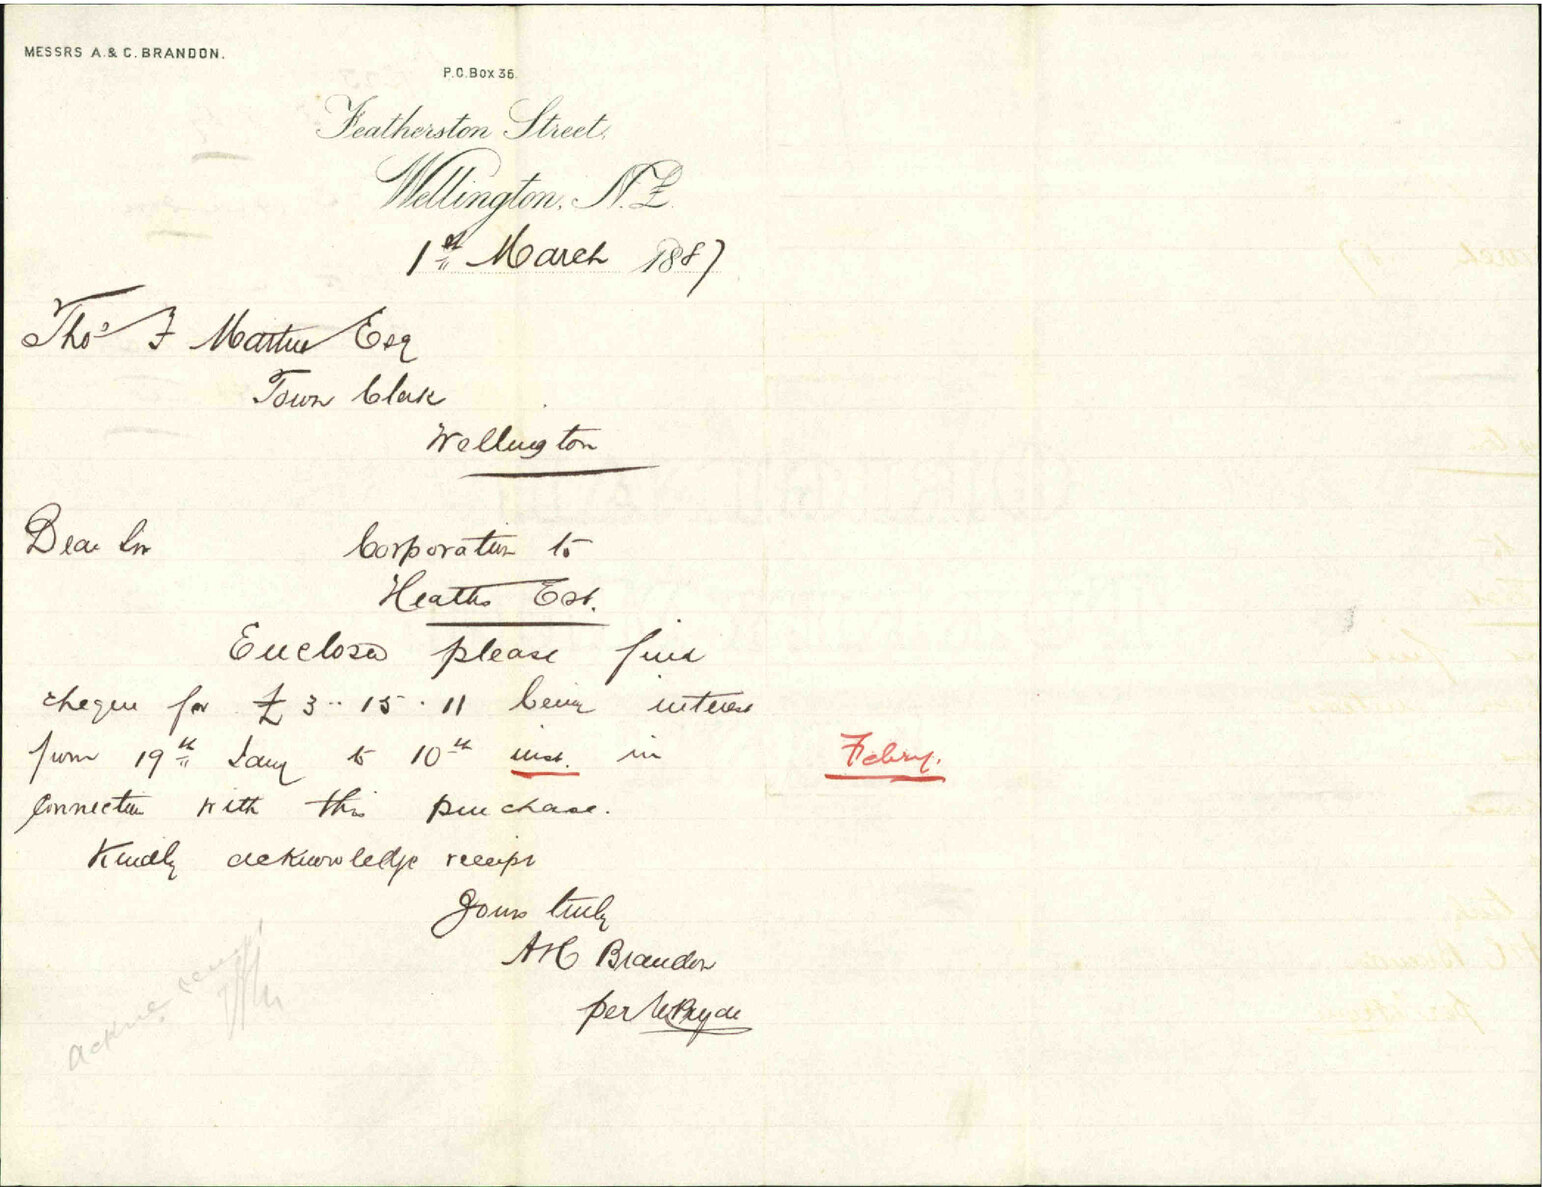 MESSRS A. & C. BRANDON.
P.O. Box 36.
Featherston Street,
Wellington, N.Z.
1st March 1887
Thos F Martin Esq
Town Clerk
Wellington
Dear Sir Corporation to
Heaths Est.
Enclosed please find
cheque for £3..15.11 being interest
from 19th Jany to 10th inst. in Febry.
Connection with this purchase.
Kindly acknowledge receipt
Yours truly
A & C Brandon
per